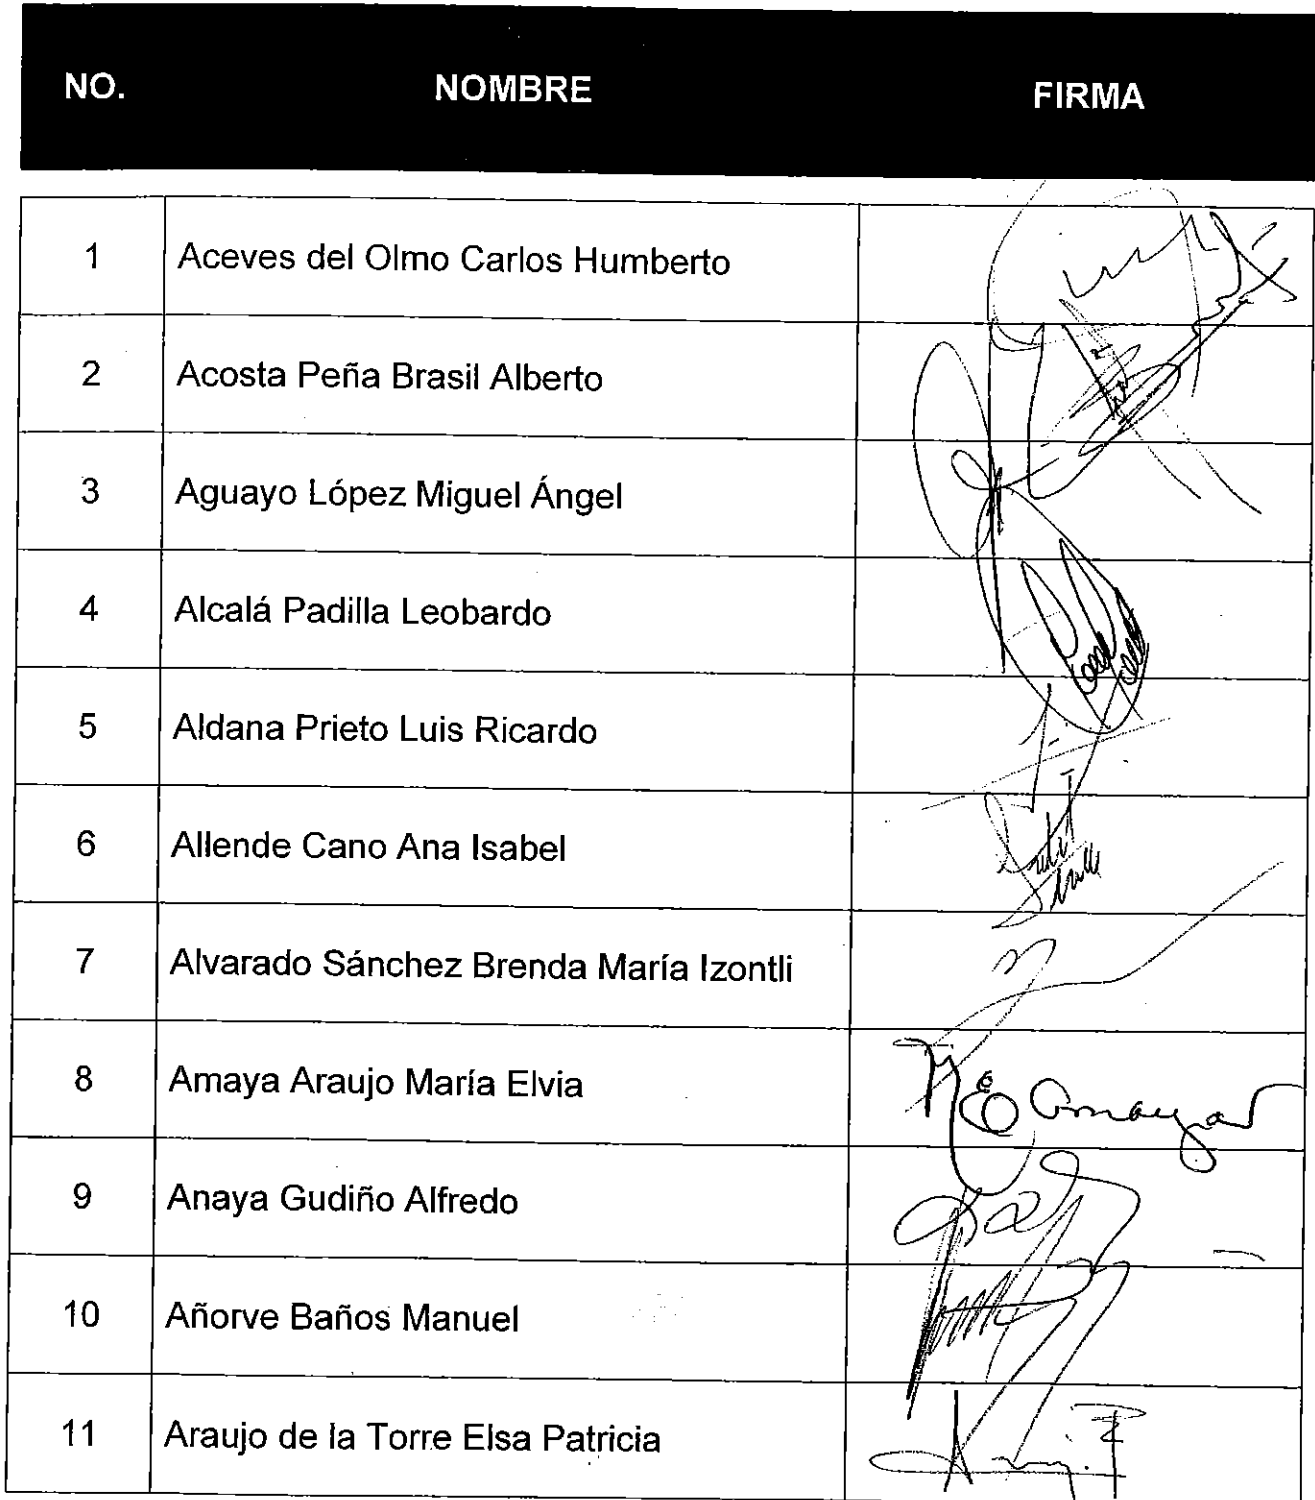 NO. NOMBRE FIRMA
1 Aceves del Olmo Carlos Humberto
2 Acosta Peña Brasil Alberto
3 Aguayo López Miguel Ángel
4 Alcalá Padilla Leobardo
5 Aldana Prieto Luis Ricardo
6 Allende Cano Ana Isabel
7 Alvarado Sánchez Brenda María Izontli
8 Amaya Araujo María Elvia
9 Anaya Gudiño Alfredo
10 Añorve Baños Manuel
11 Araujo de la Torre Elsa Patricia